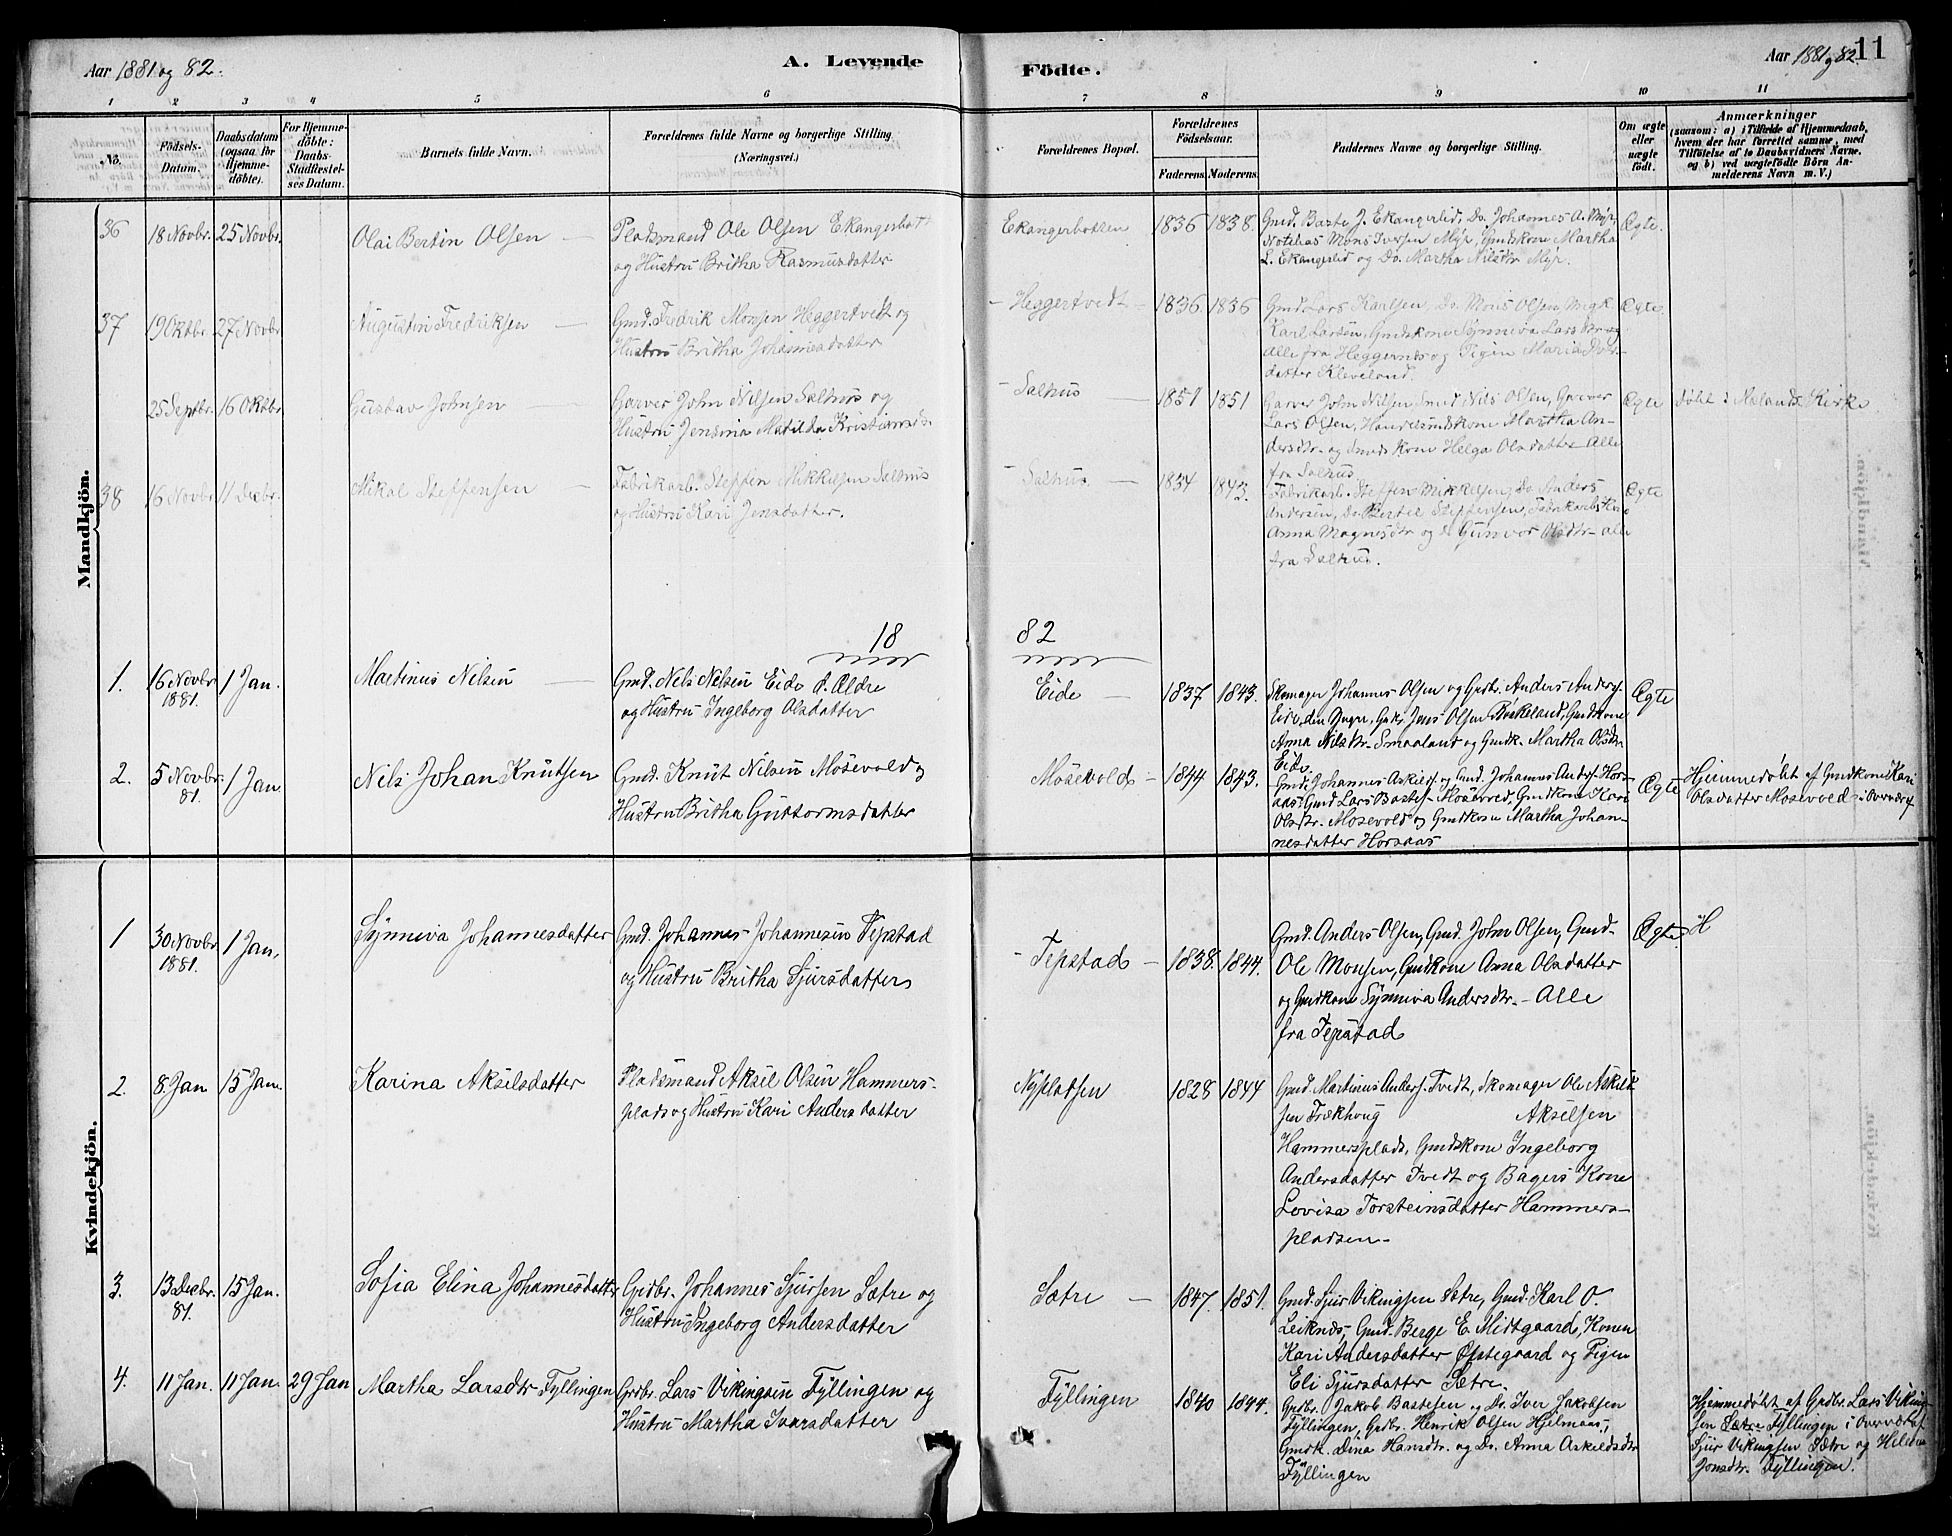 Aar 1881 og 82.
A. Levende
Födte.
Aar 1881 og 82.
11
1 2 3 4 5 6 7 8 9 10 11
No.
Födsels-
Datum.
Daabsdatum
(ogsaa for
Hjemme-
döbte).
For Hjemme-
döbte:
Daabs-
Stadfæstel-
ses Datum.
Barnets fulde Navn.
Forældrenes fulde Navne og borgerlige Stilling
(Næringsvei.)
Forældrenes Bopæl.
Forældrenes
Födselsaar.
Faderens. Moderens.
Faddernes Navne og borgerlige Stilling.
Om ægte
eller
uægte
födt.
Anmærkninger
(saasom: a) i Tilfælde af Hjemmedaab,
hvem der har forrettet samme, med
Tilföielse af to Daabsvidners Navne,
og b) ved uægtefödte Börn An-
melderens Navn m. V.)
Mandkjön.
36
18 Novbr.
25 Novbr.
Olai Bertin Olsen
Pladsmand Ole Olsen
og Hustru Britha Rasmusdatter
Ekangerbotten
1836
1838.
Gmd. Baste J. Ekangerlid, Do. Johannes A. Myr,
Mons Iversen Myr, Gmdskone Martha
L. Ekangerlid og Do. Martha Nilsdtr Myr.
Ægte.
37
19 Oktbr.
27 Novbr
Augustin Fredriksen
Gmd. Fredrik Monsen Heggertvedt og
Hustru Britha Johannesdatter
Heggertvedt
1836
1836
Gmd. Lars Karlsen, Do. Mons Olsen, Ungk.
Karl Larsen, Gmdskone Synneva Larsdtr og
alle fra Heggernes og Pigen Maria
datter Kleveland.
Ægte.
25 Septbr.
16 Oktbr.
Gustav Johnsen
Garver John Nilsen Salhus og
Hustru Jensina Matilda
Salhus
1851
1851
Garver John Nilsen, Smed Nils Olsen, Garver
Lars Olsen, Handelsmdskone Martha An-
dersdtr. og Smeds Kone Helga Olsdatter alle
fra Salhus
Ægte
Döbt i Kirke
38
16 Novbr
11 Decbr.
Mikal Steffensen
Fabrikarb. Steffen Mikkelsen Salhus
og Hustru Kari Jensdatter.
Salhus
1834
1843.
Fabrikarb. Steffen Mikkelsen, Do. Anders
Andersen, Do. Bertel Steffensen, Fabrikarbs Kone
Anna Magnesdtr og Gunvor Olsdtr. alle
fra Salhus.
Ægte
18 82
1.
16 Novbr
1881.
1 Jan.
Martinus Nilsen
Gmd. Nels Nelsen Eide d. Ældre
og Hustru Ingeborg Olsdatter
Eide
1837
1843.
Skomager Johannes Olsen og Grbr. Anders Anders.
Eide, den Yngre, Gmd. Jens Olsen Birkeland, Gmdkone
Anna Nilsdtr. Smaaland og Gmdk. Martha Olsdtr
Eide
Ægte
2.
5 Novbr.
81.
1 Jan.
Nils Johan Knutsen
Gmd. Knut Nilsen Mosevold og
Hustru Britha Guttormsdatter
Mosevold
1844
1843.
Gmd. Johannes Askilds. og Gmd. Johannes Anders. Hors-
aas, Gmd. Lars Bastes. Mosevold, Gmdkone Kari
Olsdtr. Mosevold og Gmdkone Martha Johan-
nesdatter Horsaas
Ægte
Hjemmedöbt af Gmdkone Kari
Olsdatter Mosevold i Overværf
Kvindekjön.
1
30 Novbr
1881.
1 Jan.
Synneva Johannesdatter
Gmd. Johannes Johannesen Tepstad
og Hustru Britha Sjursdatter
Tepstad
1838.
1844.
Gmd. Anders Olsen, Gmd. John Olsen, Gmd-
Ole Monsen, Gmdkone Anna Olsdatter
og Gmdkone Synneva Andersdtr. - Alle
fra Tepstad
Ægte
H
2.
8 Jan
15 Jan.
Karina Akselsdatter
Pladsmand Aksel Olsen Hammers-
plads og Hustru Kari Andersdatter
Nypladsen
1828
1844
Gmd. Martinus Anders. Tvedt, Skomager Ole Askild-
sen Trækhoug Akselsen
Hammersplads, Gmdskone Ingeborg
Andersdatter Tvedt og Bagers Kone
Lovisa Torsteinsdatter Hammers-
pladsen.
3.
13 Decbr.
81.
15 Jan.
Sofia Elina Johannesdatter
Grdbr. Johannes Sjursen Sætre og
Hustru Ingeborg Andersdatter
Sætre
1847.
1851.
Gmd. Sjur Vikingsen Sætre, Gmd. Karl O.
Leiknes, Gmd. Berge E. Midtgaard, Konen
Kari Andersdatter Øvstegaard og Pigen
Eli Sjursdatter Sætre.
4.
11 Jan.
11 Jan.
29 Jan
Martha Larsdtr Fyllingen
Grdbr. Lars Vikingsen Fyllingen og
Hustru Martha Ivarsdatter
Fyllingen
1840
1844.
Grdbr. Jakob Bastesen og Do. Iver Jakobsen
Fyllingen, Grdbr. Henrik Olsen Hjelmaas,
Gmdk. Dina Hansdtr. og Do. Anna Askildsdtr
Fyllingen
Hjemmedöbt af Grdbr. Lars Viking-
sen Sætre Fyllingen i Overvær af
Sjur Vikingsen Sætre og
Jonsdtr. Fyllingen.